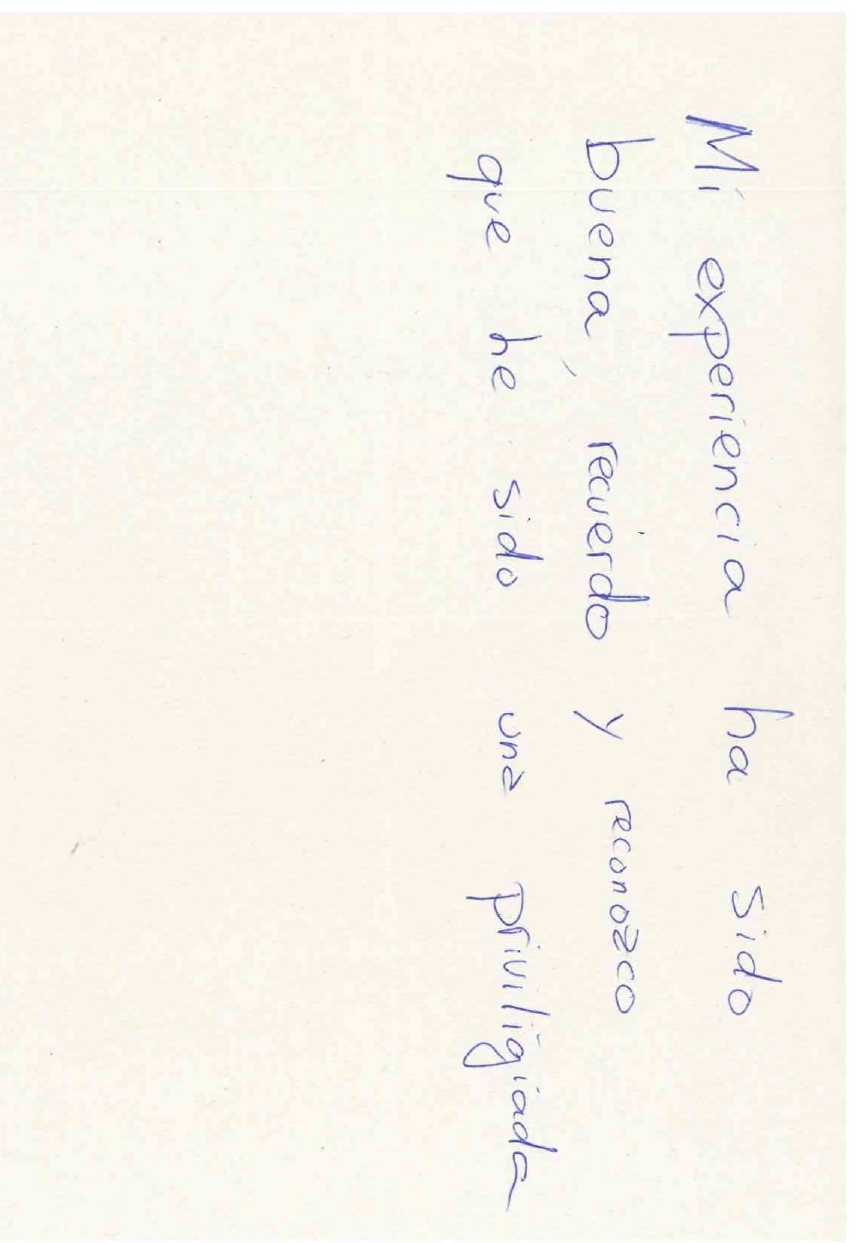 Mi experiencia ha sido
buena, recuerdo y reconozco
que he sido una priviligiada